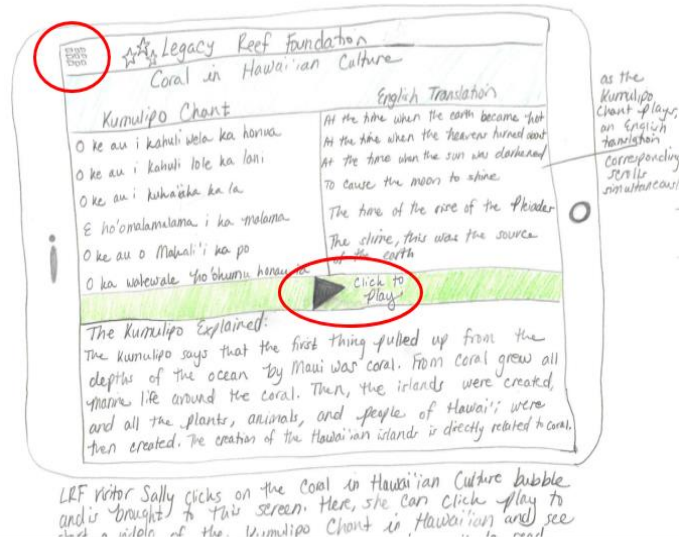 Legacy Reef Foundation
Coral in Hawai'ian Culture
Kumulipo Chant
O ke au i kahuli wela ka honua
O ke au i kahuli lole ka lani
O ke au i ka la
E ho'omalamalama i ka malama
O ke au o Makali'i ka po
O ka walewale ho'okumu honua ia
English Translation
At the time when the earth became hot
At the time when the heavens turned about
At the time when the sun was darkened
To cause the moon to shine
The time of the rise of the Pleiades
The slime, this was the source
of the earth
click to
play
The Kumulipo Explained:
The Kumulipo says that the first thing pulled up from the
depths of the ocean by Maui was coral. From coral grew all
marine life around the coral. Then, the islands were created,
and all the plants, animals, and people of Hawai'i were
then created. The creation of the Hawai'ian islands is directly related to coral.
as the
Kumulipo
Chant plays,
an English
translation
corresponding
scrolls
simultaneously
LRF visitor Sally clicks on the Coral in Hawai'ian Culture bubble
and is brought to this screen. Here, she can click play to
start a video of the Kumulipo Chant in Hawai'ian and see